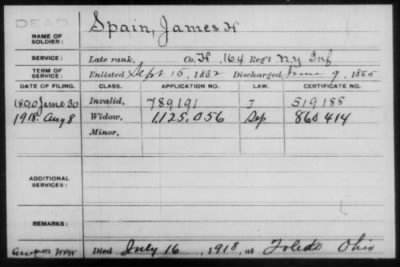 DEAD
NAME OF SOLDIER: Spain, James H
SERVICE: Late rank, Co. H, 164 Reg't N.Y. Inf
TERM OF SERVICE: Enlisted Sept 15, 1862 Discharged June 9, 1865
DATE OF FILING. CLASS. APPLICATION NO. LAW. CERTIFICATE NO.
1890 June 30 Invalid, 789191 J 519188
1918 Aug 8 Widow, 1.125,056 Sep 860414
Minor,
ADDITIONAL SERVICES:
REMARKS:
Died July 16, 1918, at Toledo Ohio